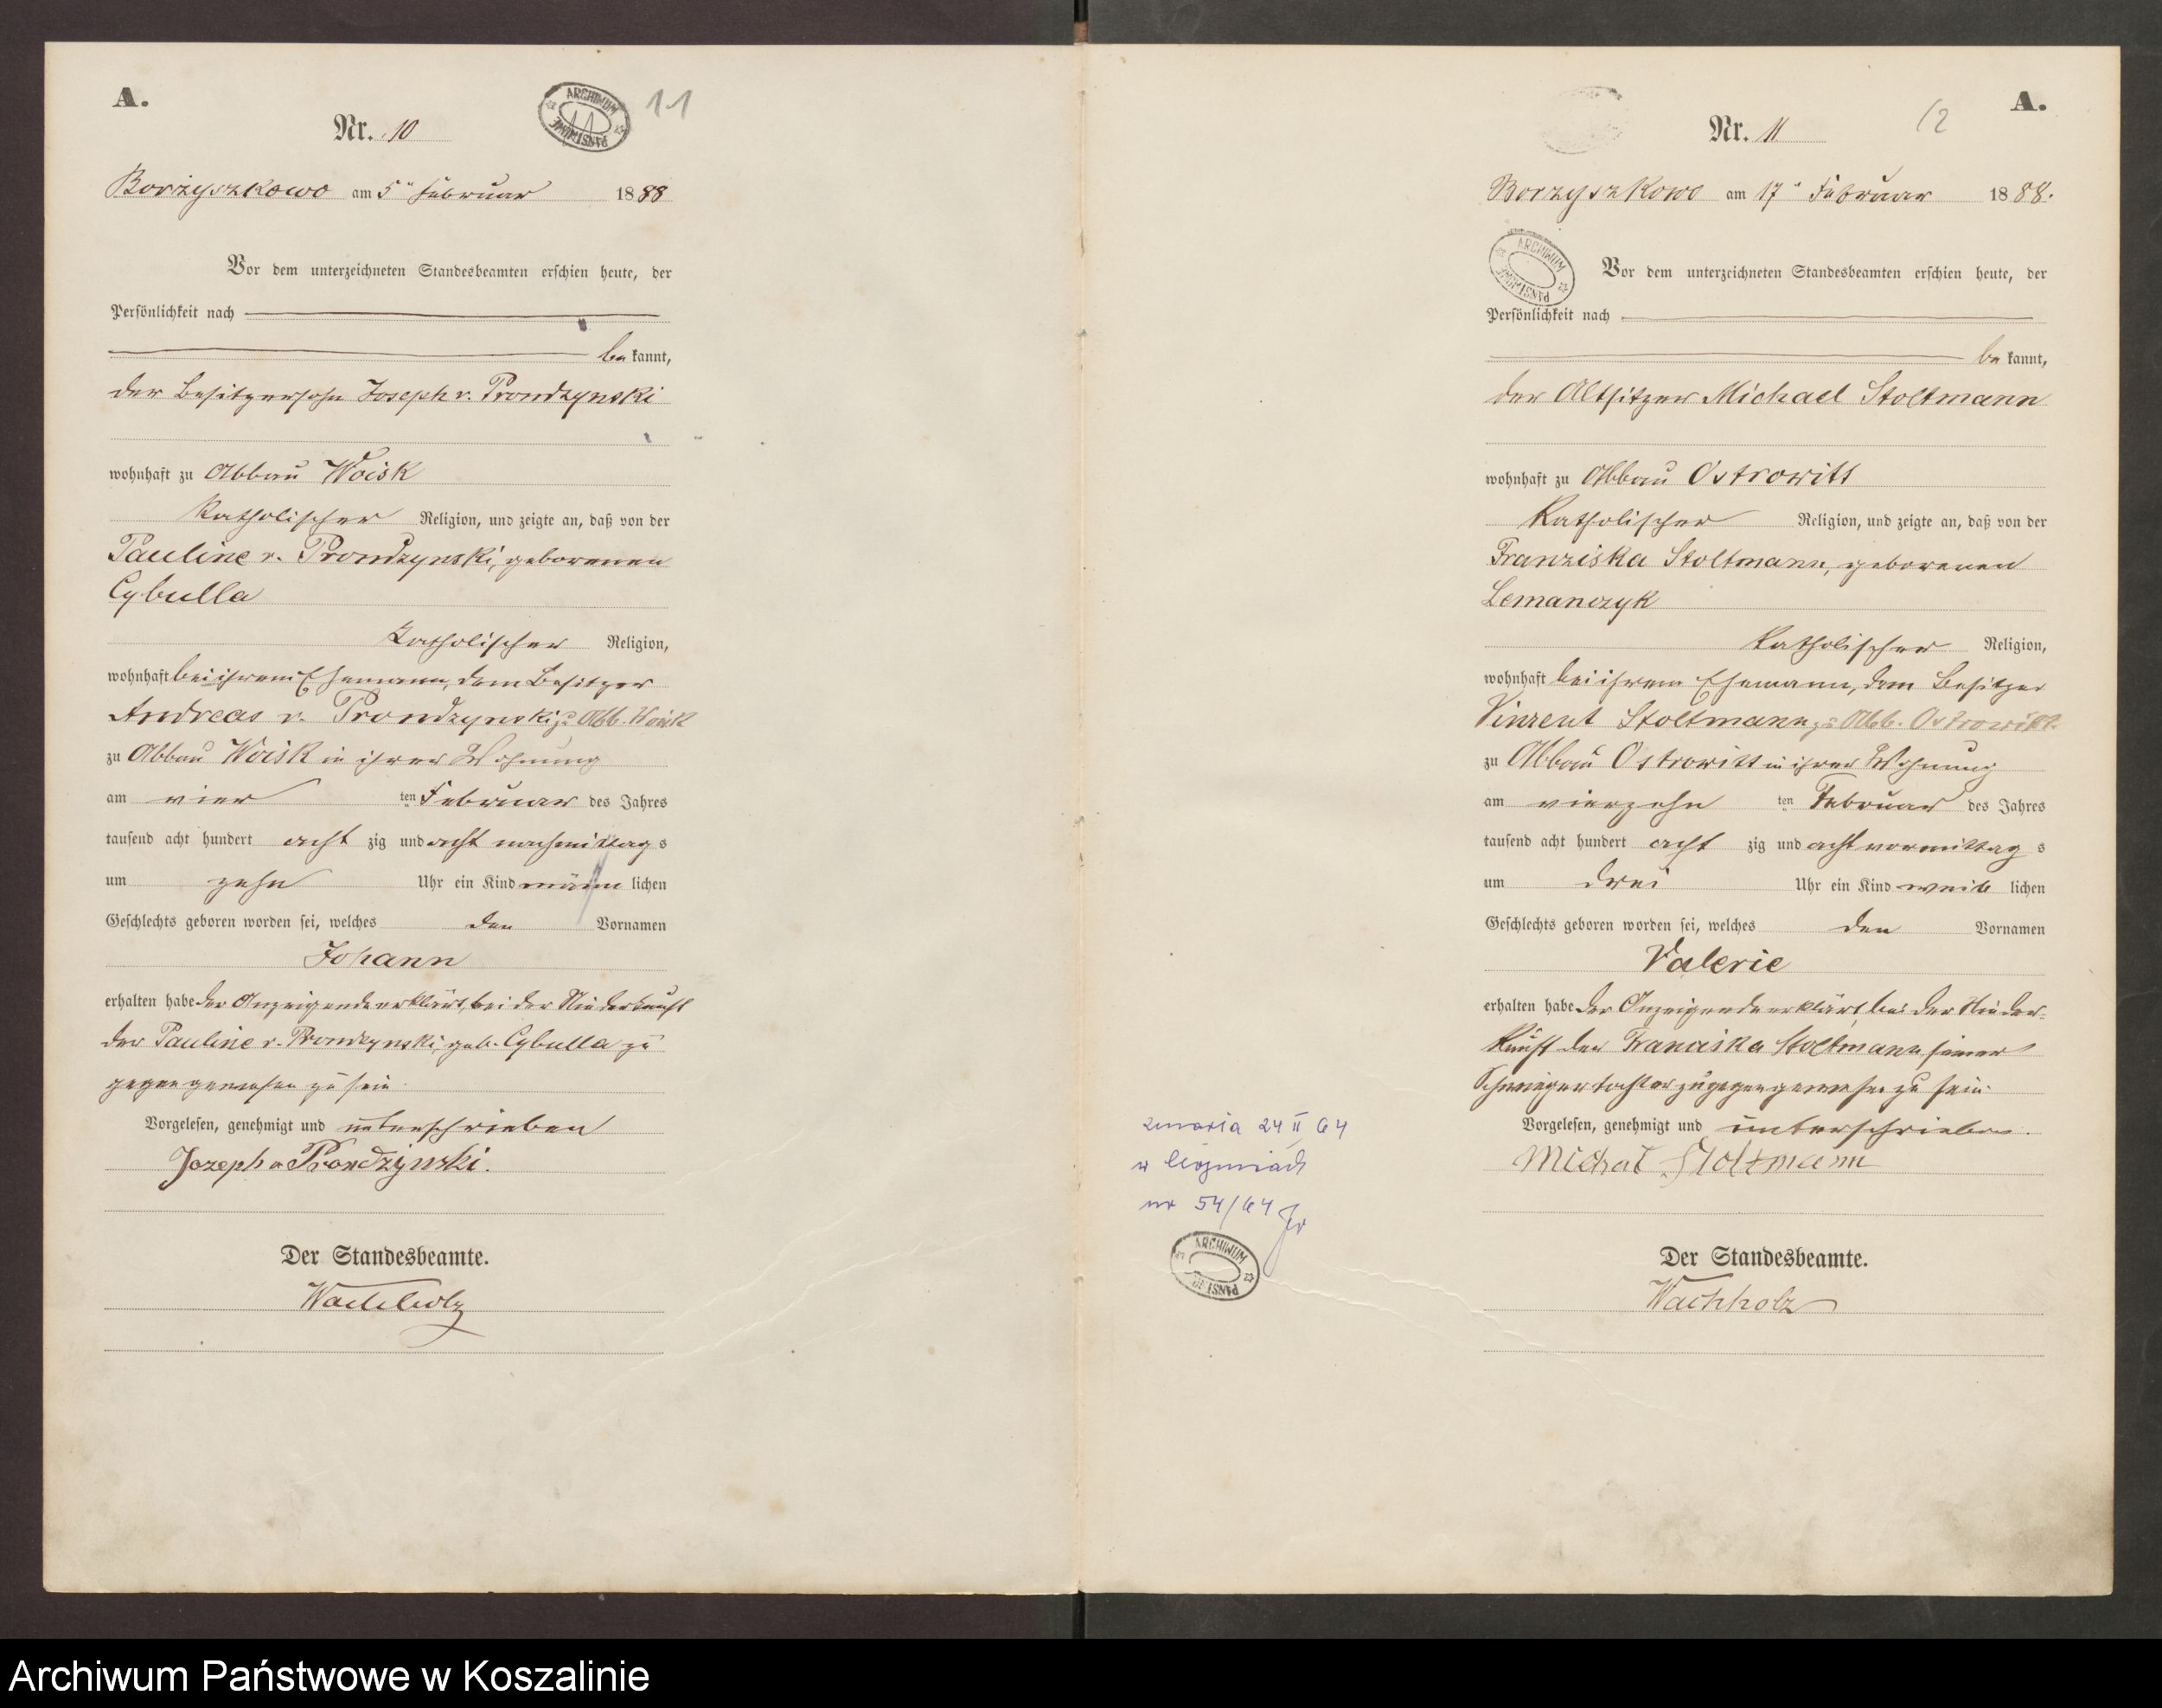 A.
Nr. 10
ARCHIWUM PAŃSTWOWE
11
Borzyszkowo am 5ten Februar 1888
Vor dem unterzeichneten Standesbeamten erschien heute, der
Persönlichkeit nach
be kannt,
der Besitzersohn Joseph v. Prondzynski
wohnhaft zu Abbau Woisk
katholischer Religion, und zeigte an, daß von der
Pauline v. Prondzynski, geborenen
Cybulla
katholischer Religion,
wohnhaft bei ihrem Ehemann, dem Besitzer
Andreas v. Prondzynski zu Abb. Woisk
zu Abbau Woisk in ihrer Wohnung
am vier ten Februar des Jahres
tausend acht hundert acht zig und acht nachmittag s
um zehn Uhr ein Kind männ lichen
Geschlechts geboren worden sei, welches den Vornamen
Johann
erhalten habe der Anzeigende erklärt, bei der Niederkunft
der Pauline v. Prondzynski, geb. Cybulla zu
gegen gewesen zu sein.
Vorgelesen, genehmigt und unterschrieben
Jozeph v Prondzynski.
Der Standesbeamte.
Wachholz
A.
12
Nr. 11
Borzyszkowo am 17ten Februar 1888.
ARCHIWUM PAŃSTWOWE
Vor dem unterzeichneten Standesbeamten erschien heute, der
Persönlichkeit nach
be kannt,
der Altsitzer Michael Stoltmann
wohnhaft zu Abbau Ostrowitt
katholischer Religion, und zeigte an, daß von der
Franziska Stoltmann, geborenen
Lemanczyk
katholischer Religion,
wohnhaft bei ihrem Ehemann, dem Besitzer
Vinzent Stoltmann zu Abb. Ostrowitt
zu Abbau Ostrowitt in ihrer Wohnung
am vierzehn ten Februar des Jahres
tausend acht hundert acht zig und acht vormittag s
um drei Uhr ein Kind weib lichen
Geschlechts geboren worden sei, welches den Vornamen
Valerie
erhalten habe der Anzeigende erklärt, bei der Nieder-
kunft der Franciska Stoltmann seiner
Schwiegertochter zugegen gewesen zu sein.
Vorgelesen, genehmigt und unterschrieben.
Michal Stoltmann
Der Standesbeamte.
Wachholz
zmarła 24 II 64
w
nr 54/64
ARCHIWUM PAŃSTWOWE
Archiwum Państwowe w Koszalinie